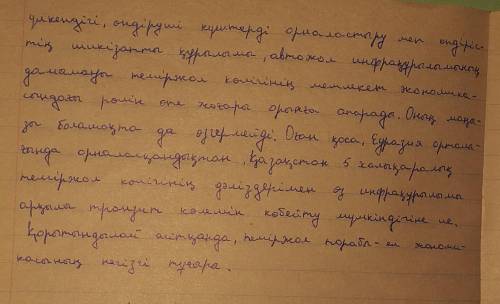 үлкендігі, өндіруші күштерді орналастыру мен өндіріс-
тің шикізатты құрылымы, автожол инфрақұрылымының
дамымауы теміржол көлігінің мемлекет экономика-
сындағы рөлін өте жоғары орынға апарады. Оның маңы-
зы болашақта да өзгермейді. Оған қоса, Еуразия ортала-
ғында орналасқандықтан, Қазақстан 5 халықаралық
теміржол көлігінің дәліздерімен өз инфрақұрылымы
арқылы транзит көлемін көбейту мүмкіндігіне ие.
Қорытындылай айтқанда, теміржол торабы - ел эконо-
микасының негізгі тұсы.